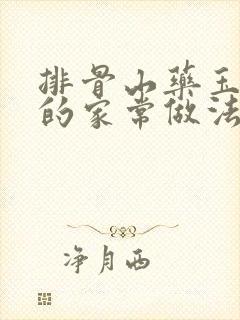 排骨山药玉
的家常做法
净月西